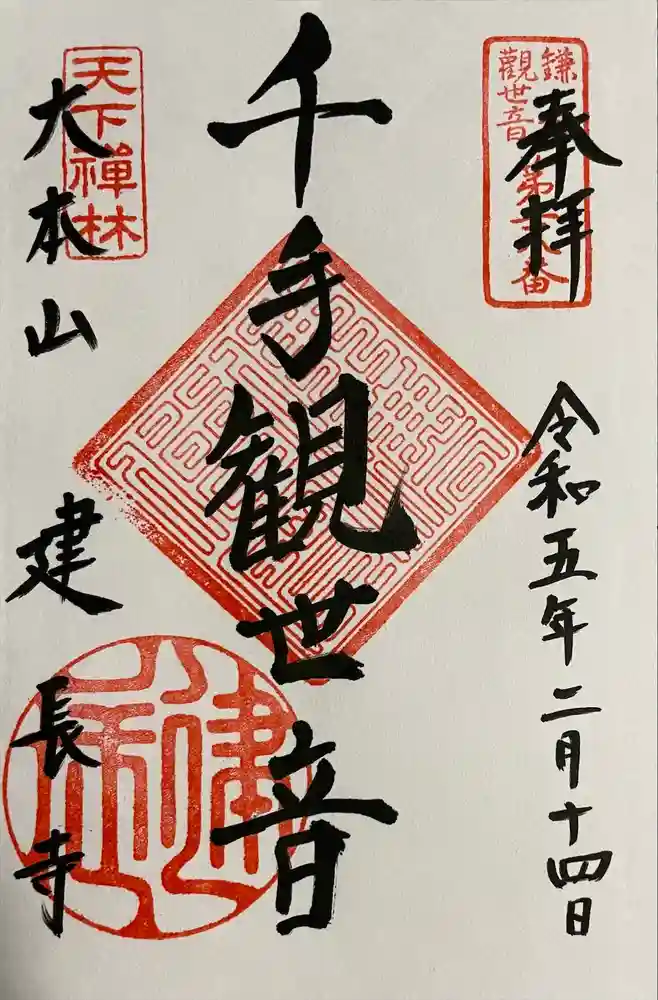 奉拝
令和五年二月十四日
千手観世音
大本山 建長寺
観世音
天下禅林